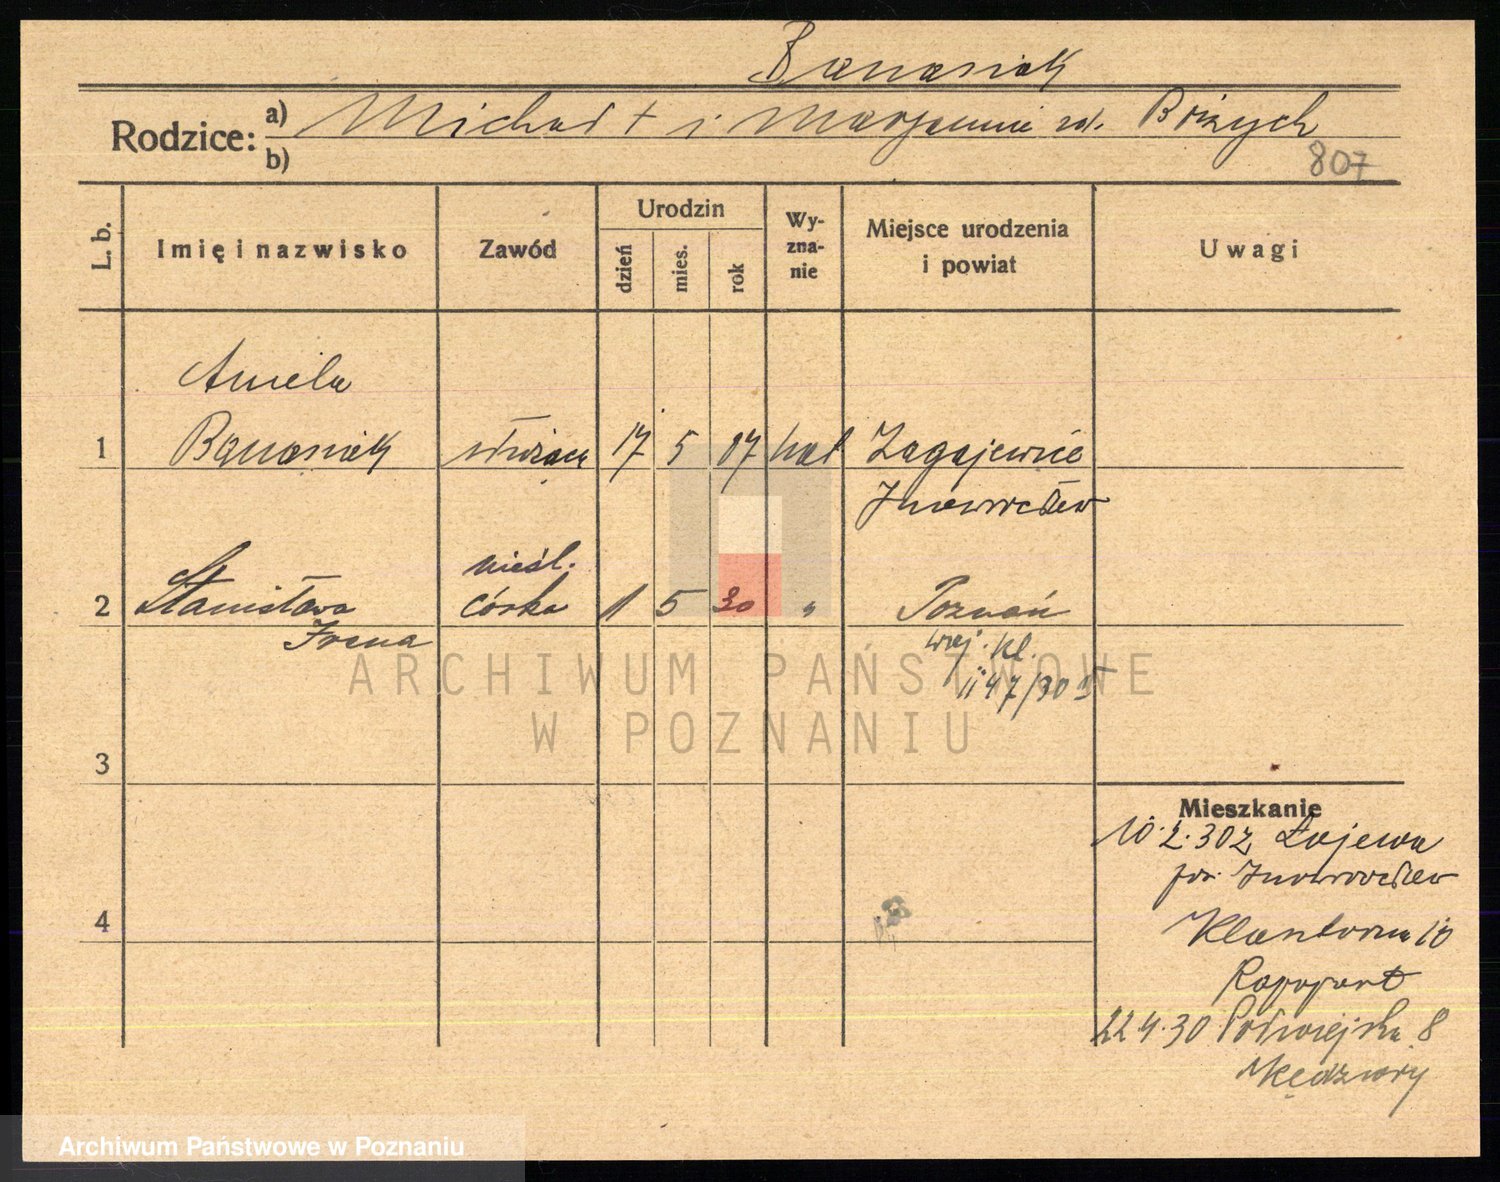 Banasiak
Rodzice: a) Michał + i Marjanna zd. Bożych
b)
807
L. b.
Imię i nazwisko
Zawód
Urodzin
dzień
mies.
rok
Wy-
zna-
nie
Miejsce urodzenia
i powiat
Uwagi
Aniela
1 Banasiak służąca 17 5 07 kat Zagajewice
Inowrocław
nieśl.
2 Stanisława córka 1 5 30 " Poznań
Irena
kl.
47/30
3
4
Mieszkanie
10.2.30 z Łojewa
pow. Inowrocław
10
Rapoport
22.4.30 Półwiejska 8
Mędziory
ARCHIWUM PAŃSTWOWE
W POZNANIU
Archiwum Państwowe w Poznaniu